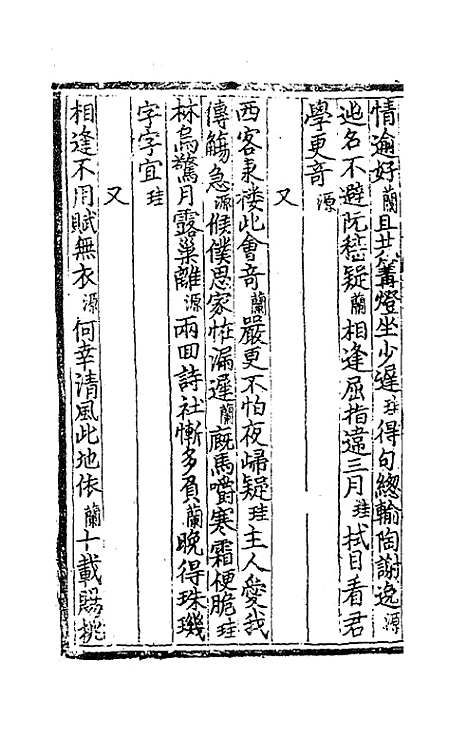 情逾好蘭且共篝燈坐少遲珪得句總輸陶謝逸源
逃名不避阮嵇疑蘭相逢屈指違三月珪拭目看君
學更奇源
又
西客東樓此會奇蘭嚴更不怕夜歸疑珪主人愛我
傳觴急源候僕思家怪漏遲蘭廐馬嚼寒霜便脆珪
林烏驚月露巢離源兩回詩社慚多負蘭晚得珠璣
字字宜珪
又
相逢不用賦無衣源何幸清風此地依蘭十載賜桃